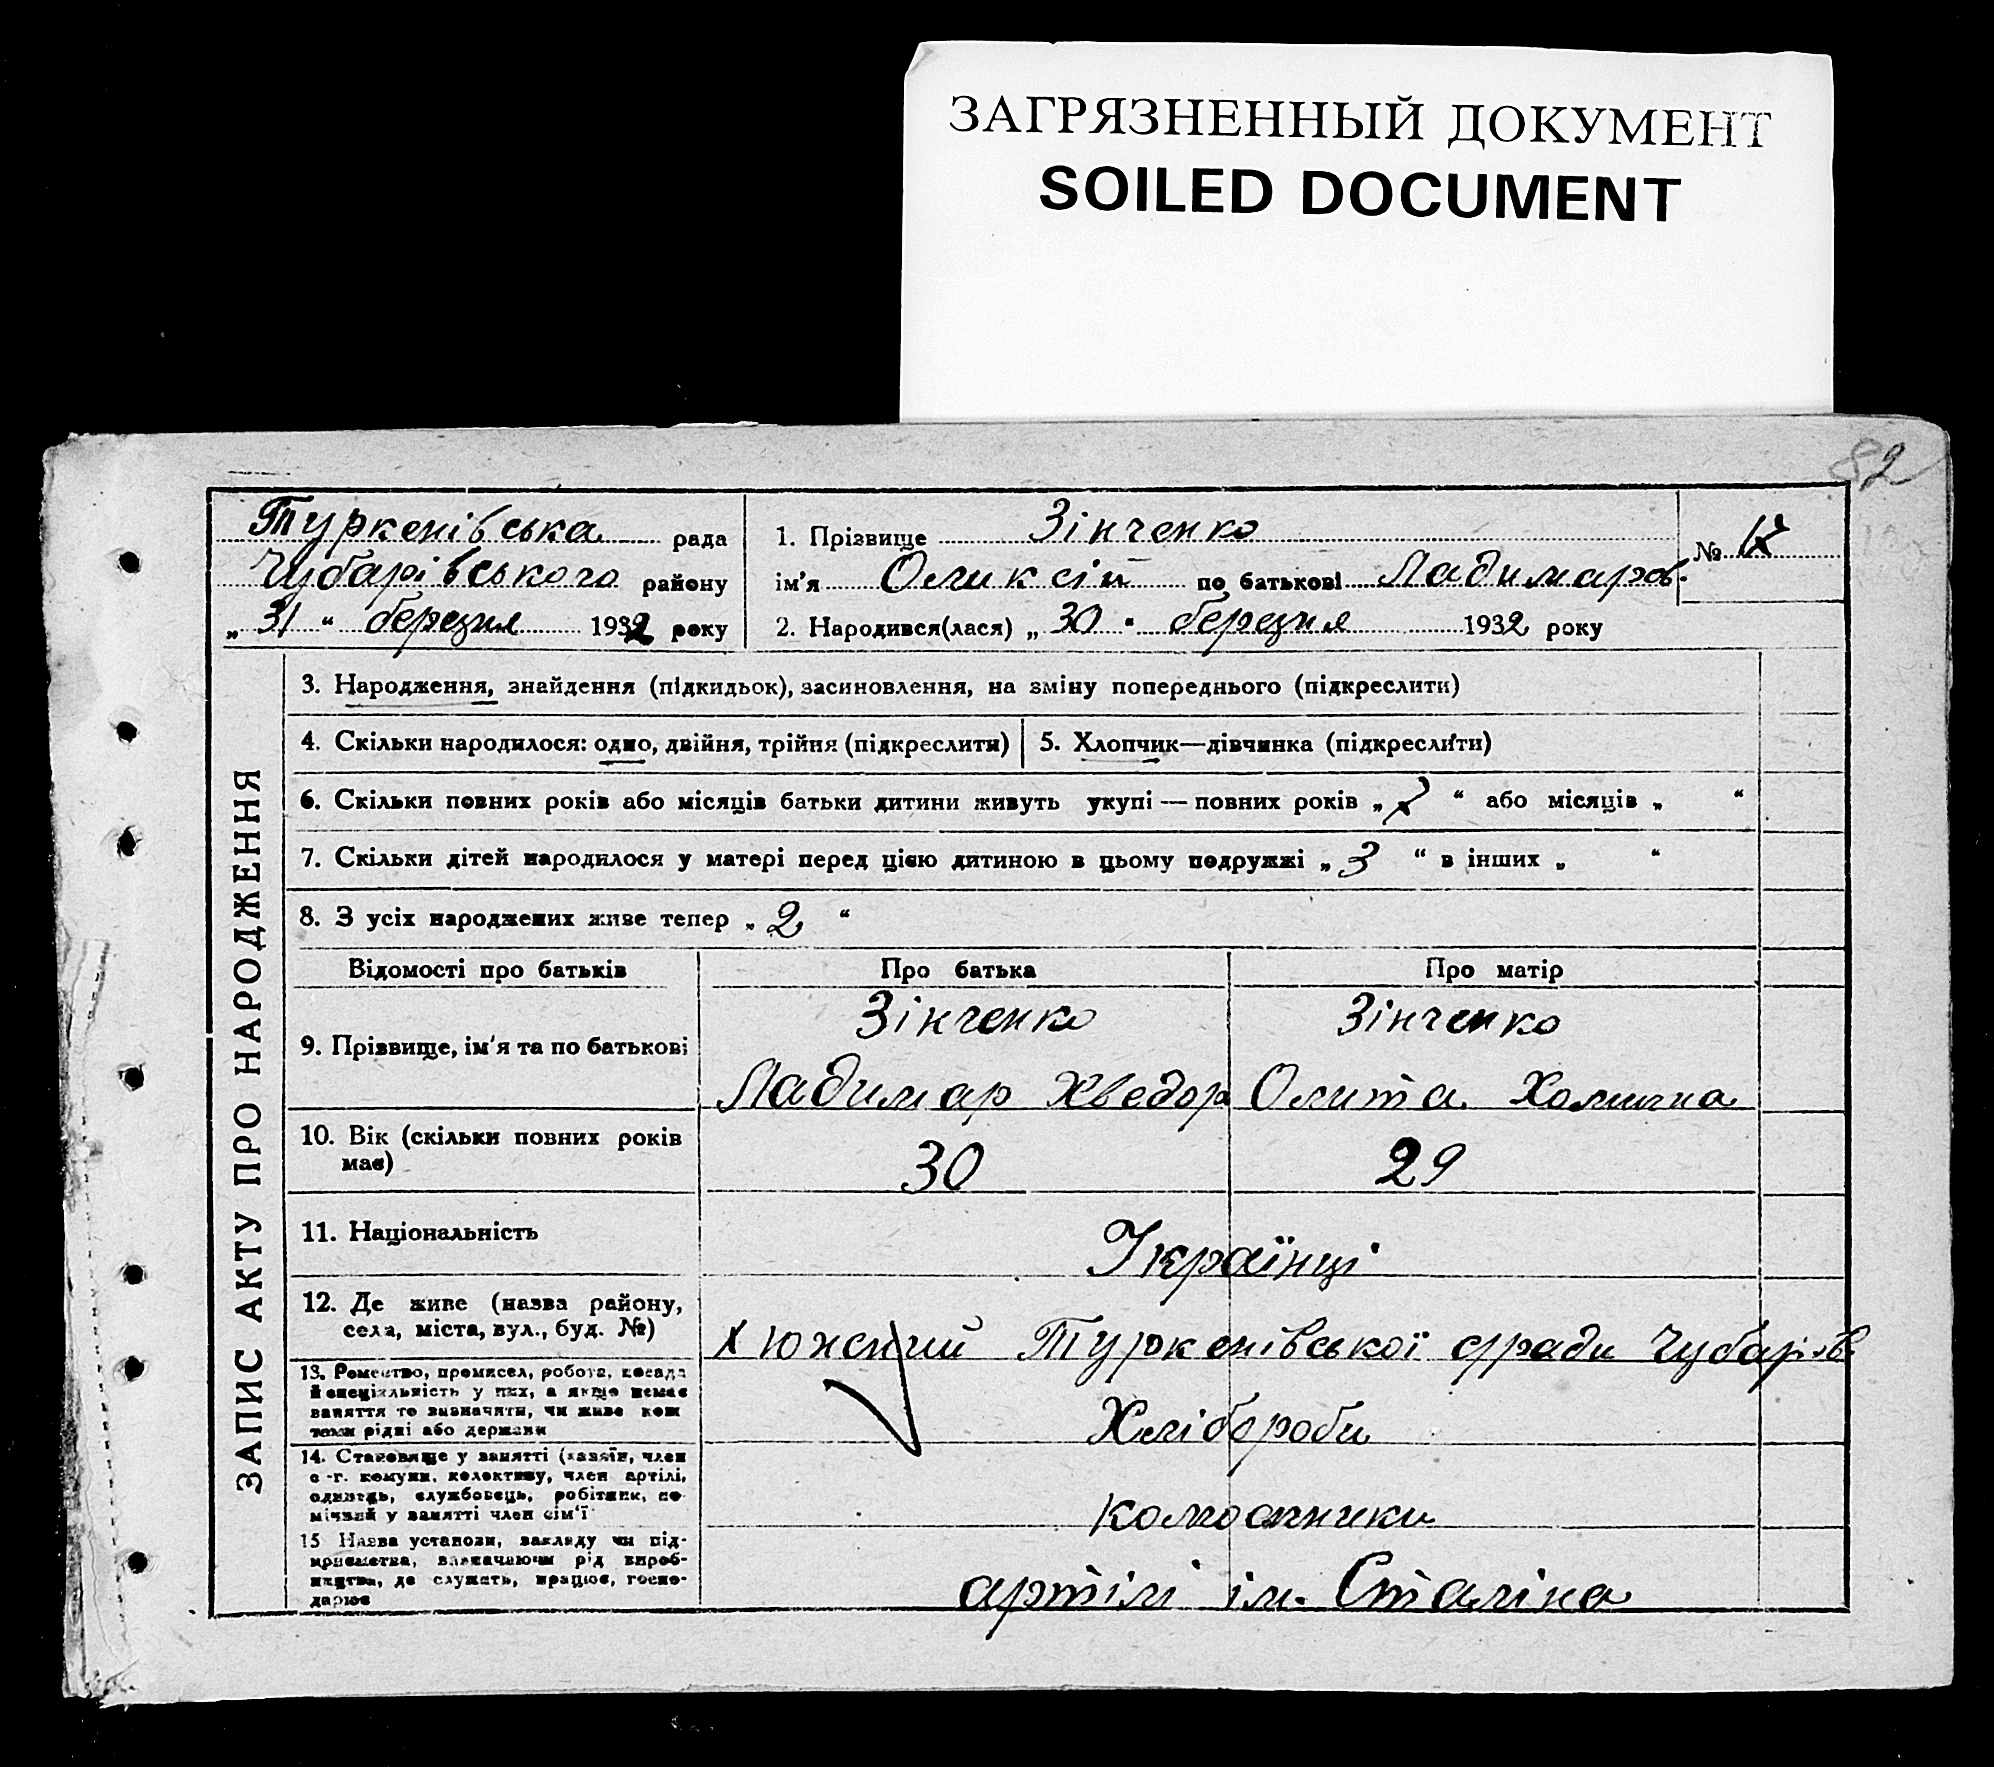 ЗАГРЯЗНЕННЫЙ ДОКУМЕНТ
SOILED DOCUMENT
82
Туркенівська рада
Чубарівського району
„ 31 “ березня 1932 року
1. Прізвище Зінченко
№ 17
ім'я Оликсій по батькові Ладимаров.
2. Народився(лася) „ 30 “ березня 1932 року
ЗАПИС АКТУ ПРО НАРОДЖЕННЯ
3. Народження, знайдення (підкидьок), засиновлення, на зміну попереднього (підкреслити)
4. Скільки народилося: одно, двійня, трійня (підкреслити)
5. Хлопчик—дівчинка (підкреслити)
6. Скільки повних років або місяців батьки дитини живуть укупі — повних років „ “ або місяців „ “
7. Скільки дітей народилося у матері перед цією дитиною в цьому подружжі „ 3 “ в інших „ “
8. З усіх народжених живе тепер „ 2 “
Відомості про батьків
Про батька
Про матір
9. Прізвище, ім'я та по батькові
Зінченко
Ладимар Хведор
Зінченко
Олита Хомична
10. Вік (скільки повних років
має)
30
29
11. Національність
Українці
12. Де живе (назва району,
села, міста, вул., буд. №)
х Южний Туркенівської с/ради Чубарів.
13. Ремество, промисел, робота, посада
й спеціяльність у них, а якщо немає
заняття то визначити, чи живе кош
тами рідні або держави
Хлібороби
14. Становище у занятті (хазяїн, член
с.-г. комуни, колективу, член артілі,
одинець, службовець, робітник, по-
мічний у занятті член сім'ї
колгоспники
15 Назва установи, закладу чи під-
приємства, визначаючи рід вироб-
ництва, де служить, працює, госпо-
дарює
артілі ім. Сталіна